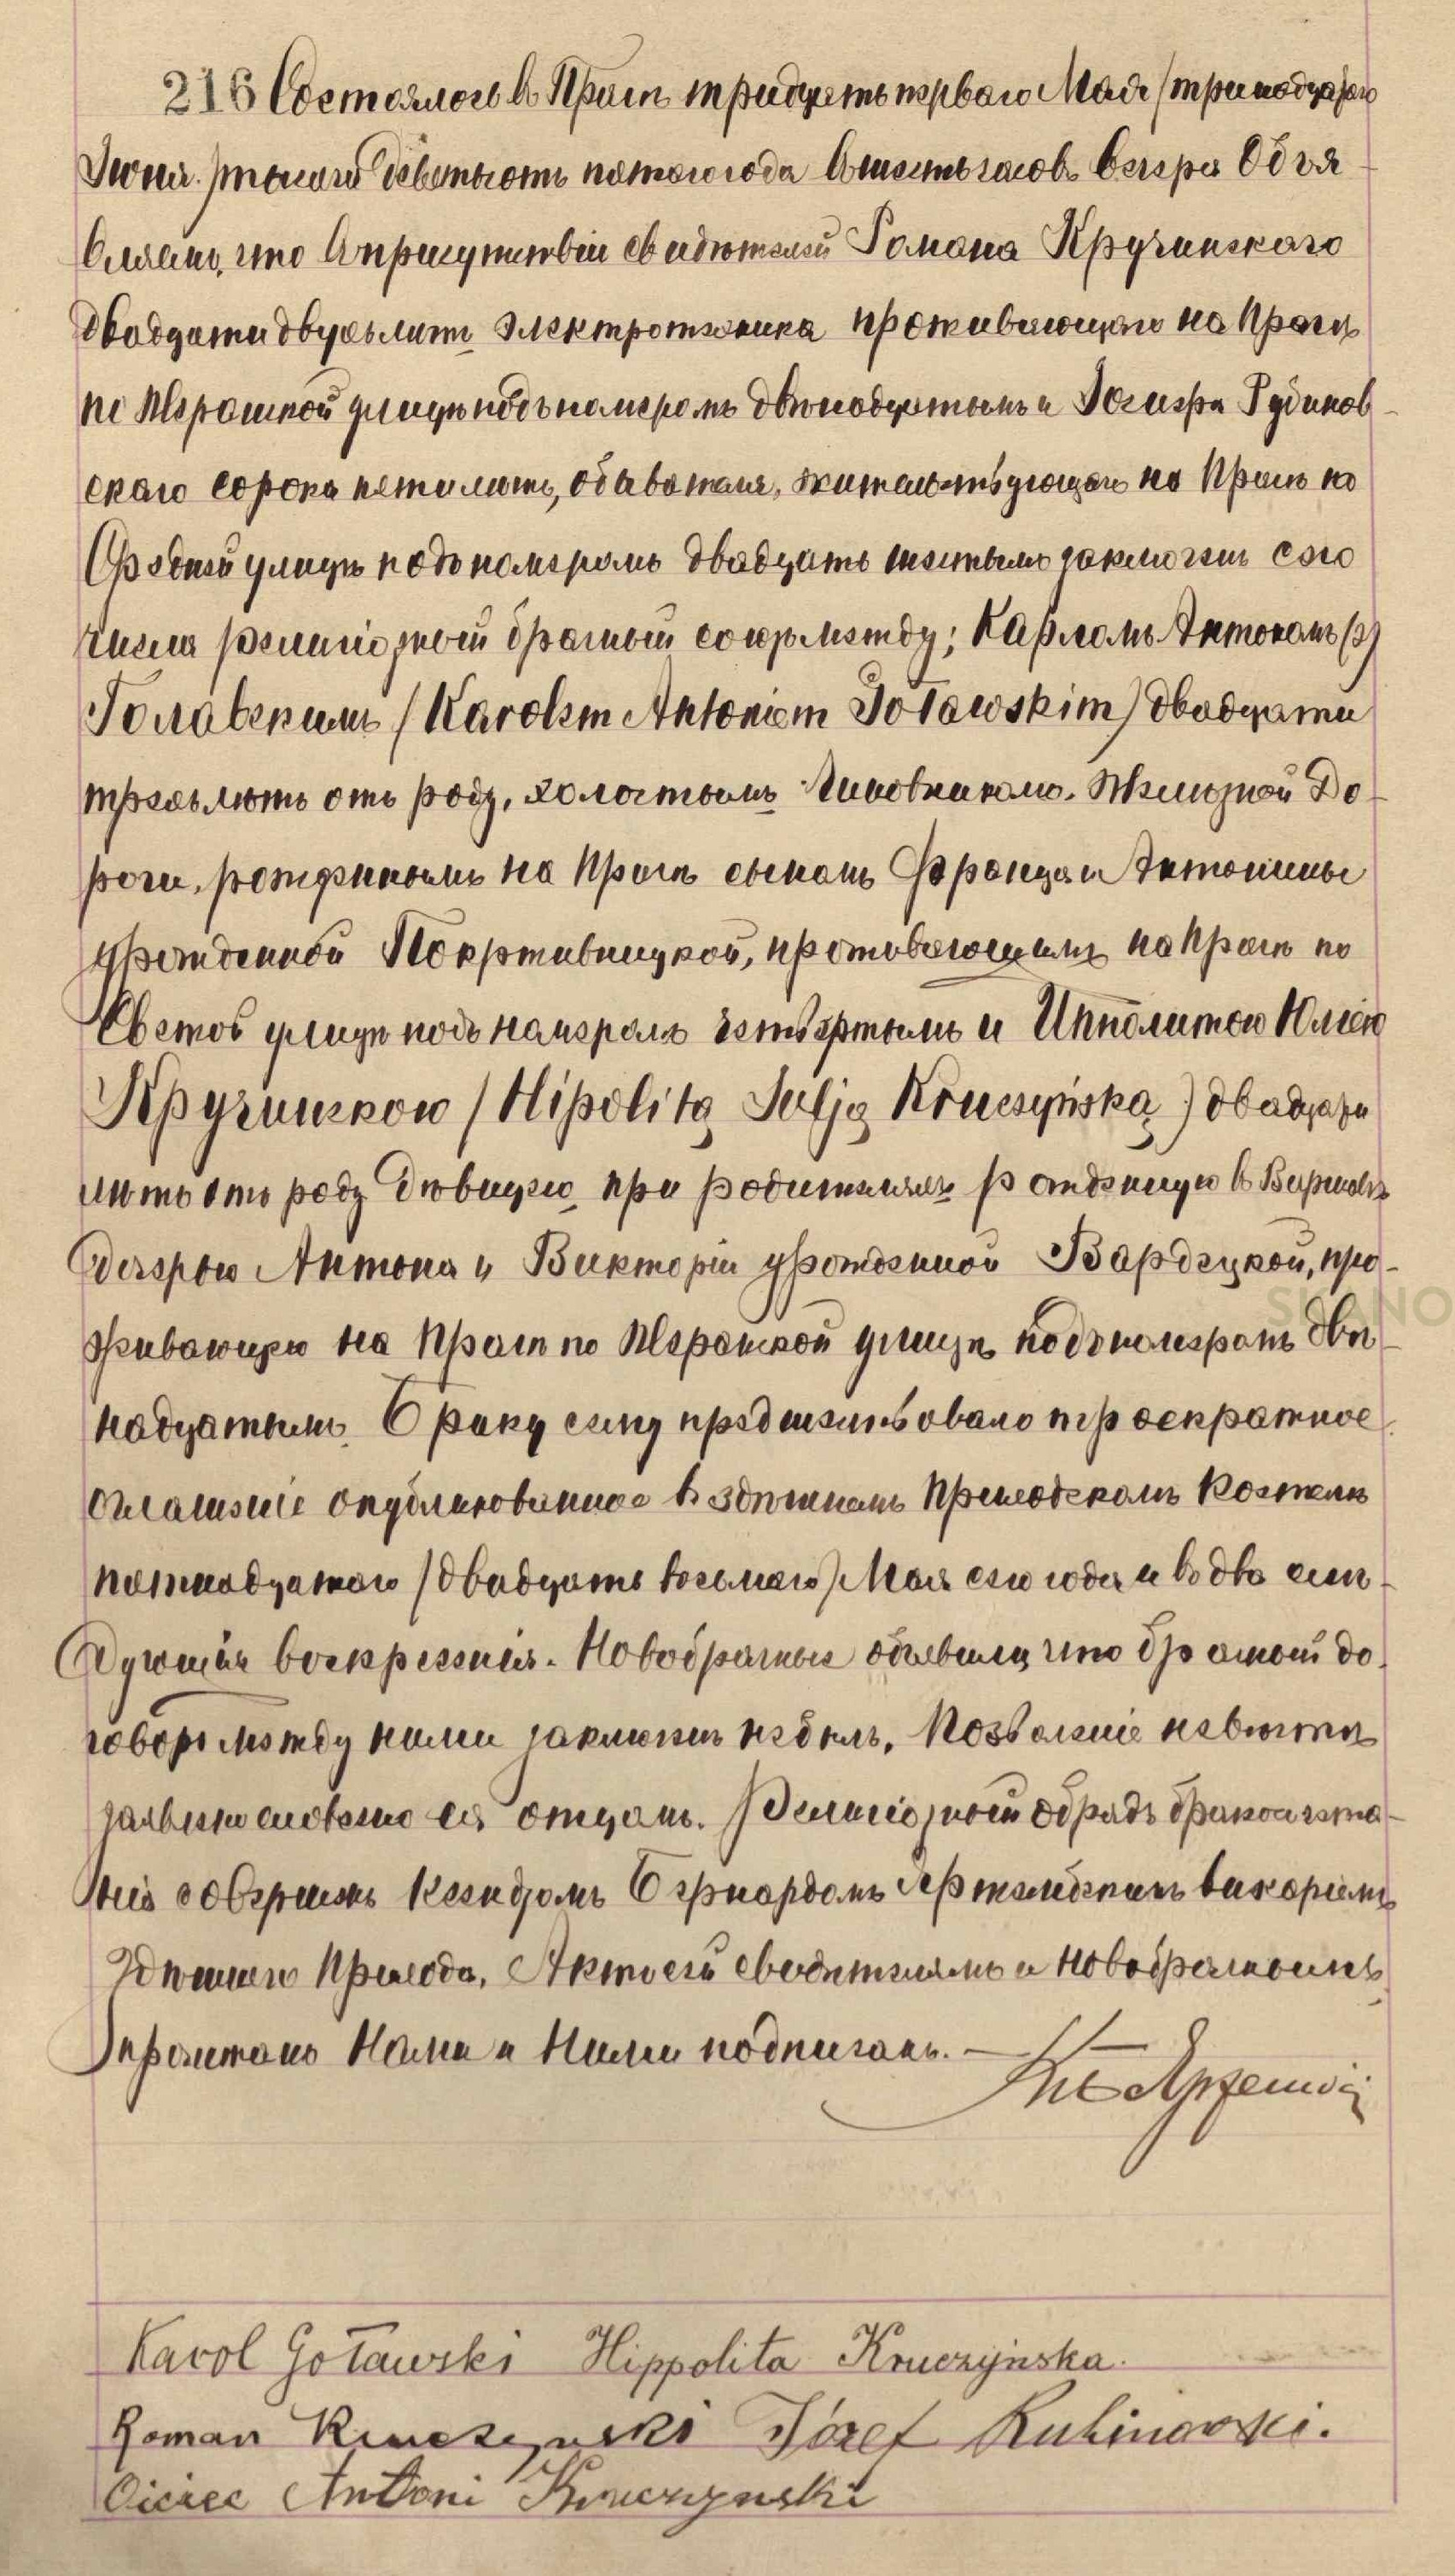 216 Состоялось въ Прагѣ тридцать перваго Мая / тринадцатаго
Іюня / тысяча девятьсотъ пятаго года въ шесть часовъ вечера Объя-
вляемъ, что въ присутствіи свидѣтелей Романа Кручинскаго
двадцати двухъ лѣтъ электротехника проживающаго на Прагѣ
по Шерошкой улицѣ подъ номеромъ двѣнадцатымъ и Іосифа Рубинов-
скаго сорока пяти лѣтъ, обывателя, жительствующаго на Прагѣ по
Средней улицѣ подъ номеромъ двадцать шестымъ заключенъ сего
числа религіозный брачный союзъ между: Карломъ Антономъ (2)
Голавскимъ / Karolem Antoniem Goławskim) двадцати
трехъ лѣтъ отъ роду, холостымъ Чиновникомъ Желѣзной До-
роги, рожденнымъ на Прагѣ сыномъ Франца и Антонины
урожденной проживающимъ на Прагѣ по
улицѣ подъ номеромъ четвертымъ и Ипполитою Юліею
Кручинскою / Hipolitą Julją Kruczyńską) двадцати
лѣтъ отъ роду дѣвицею при родителяхъ рожденную въ Варшавѣ
дочерью Антона и Викторіи урожденной Вардецкой, про-
живающею на Прагѣ по улицѣ подъ номеромъ двѣ-
надцатымъ. Браку сему предшествовало троекратное
оглашеніе опубликованное въ здѣшнемъ Приходскомъ Костелѣ
пятнадцатаго / двадцать восьмаго) Мая сего года и въ два слѣ-
дующія воскресенія. Новобрачные объявили, что брачный до-
говоръ между ними заключенъ не былъ. Позволеніе невѣстѣ
заявлено словесно ея отцомъ. Религіозный обрядъ бракосочета-
нія совершенъ Ксендзомъ Бернардомъ викаріемъ
здѣшняго Прихода. Актъ сей свидѣтелямъ и новобрачнымъ
прочитанъ Нами и Ними подписанъ. —
Karol Goławski Hippolita Kruczyńska.
Roman Kruczynski Józef Rubinowski.
Ojciec Antoni Kruczynski